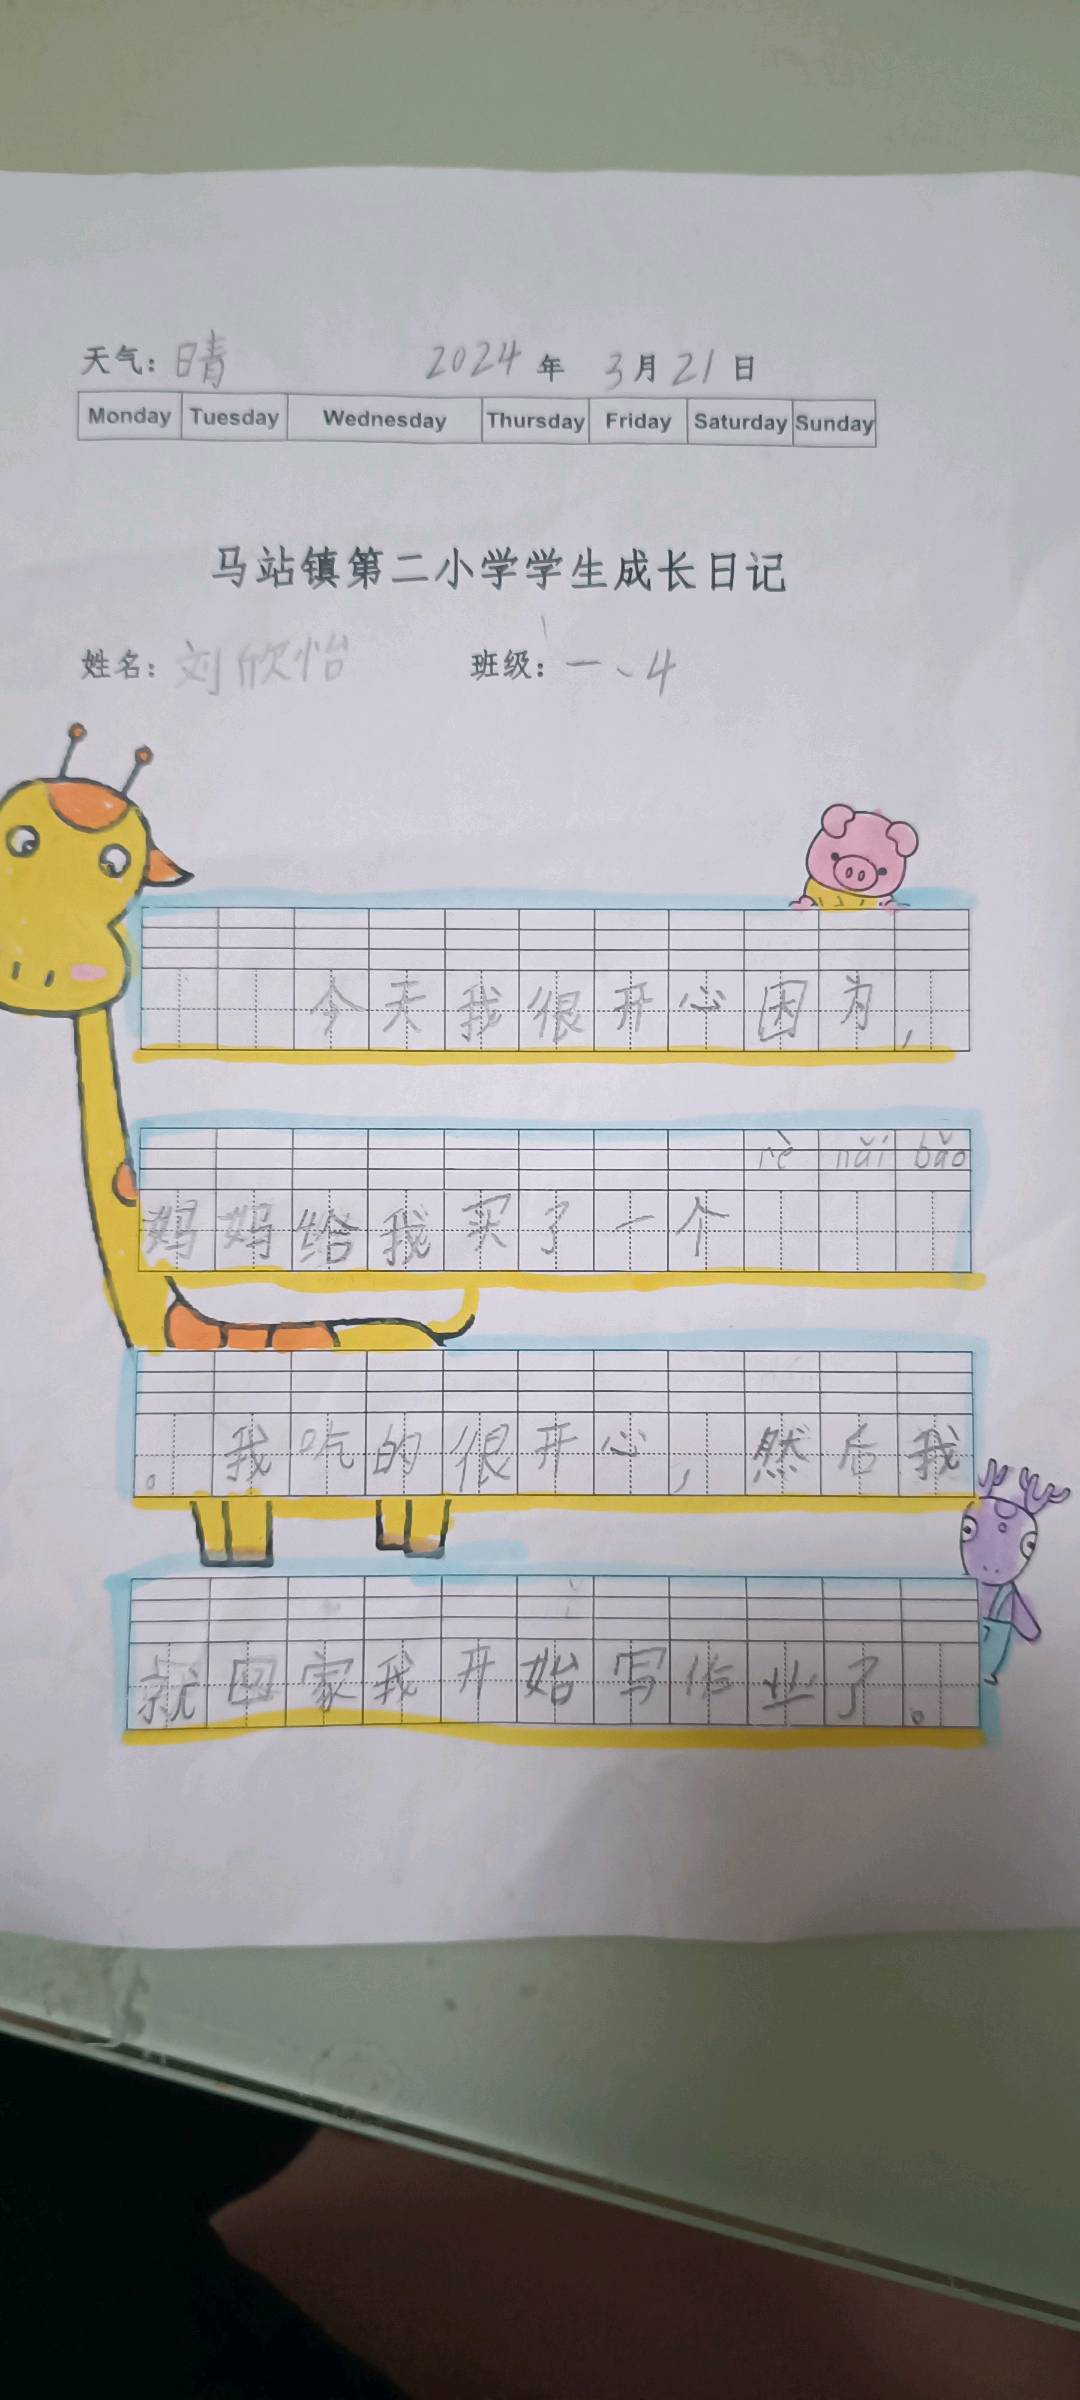 天气：晴 2024年 3月21日
Monday Tuesday Wednesday Thursday Friday Saturday Sunday
马站镇第二小学学生成长日记
姓名：刘欣怡 班级：一、4
今天我很开心因为，
rè nǎi bǎo
妈妈给我买了一个
。我吃的很开心，然后我
就回家我开始写作业了。